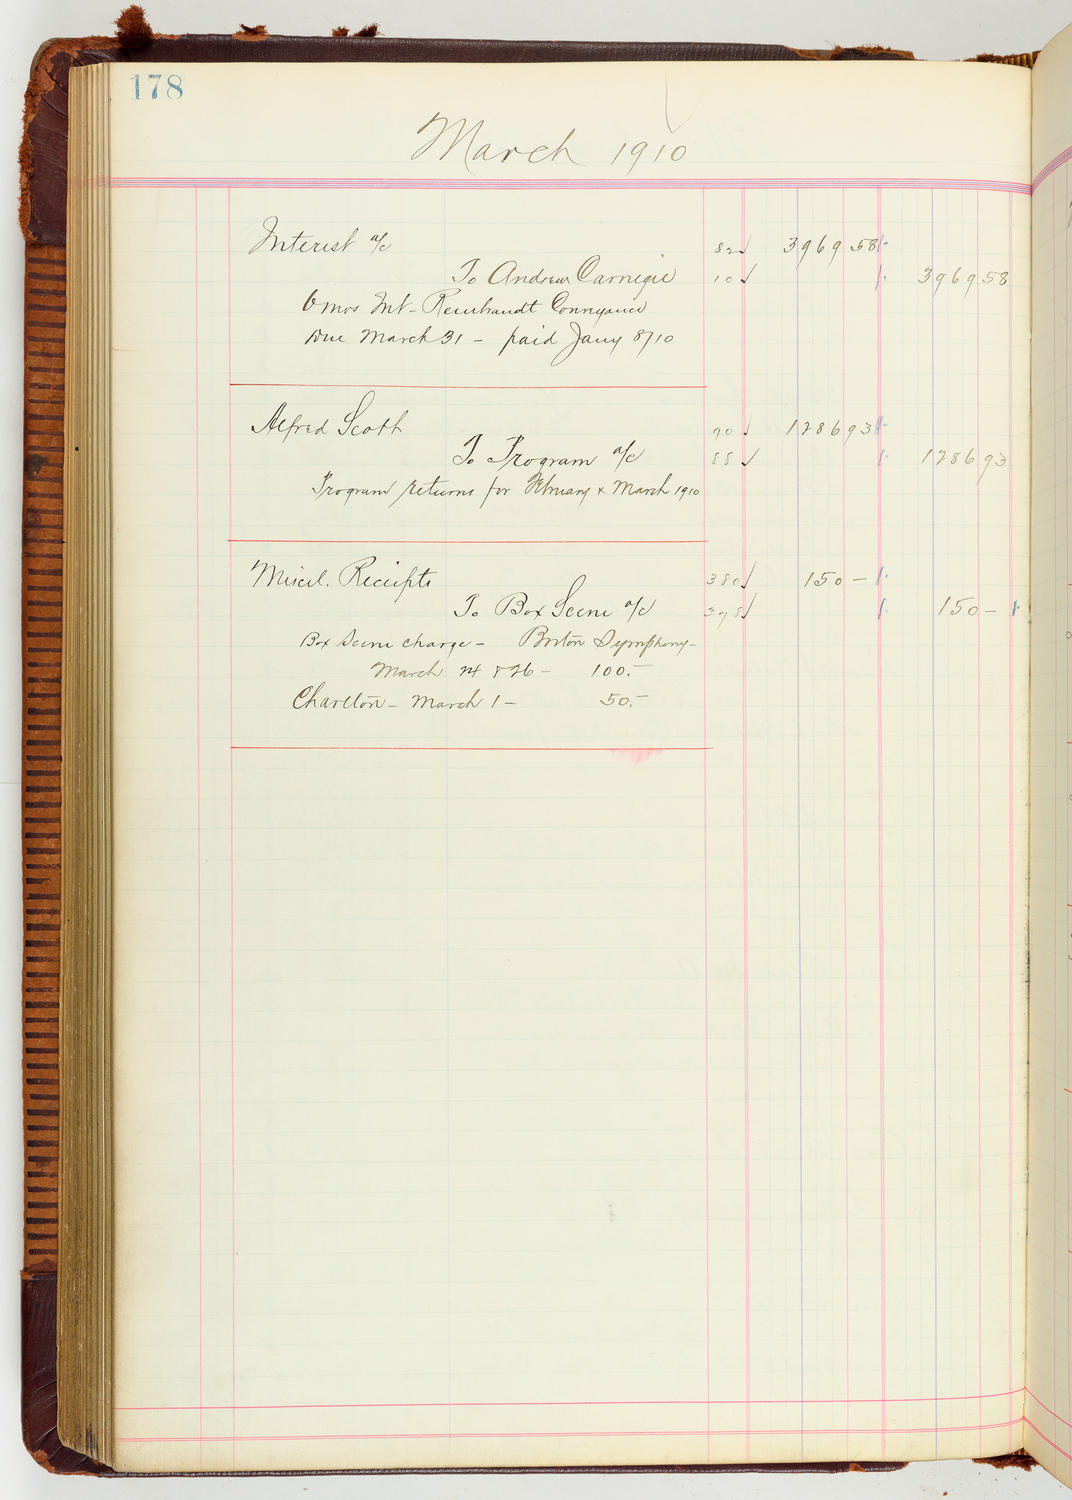 178
March 1910
Interest a/c 82 3969 58
To Andrew Carnegie 10 3969 58
6 mos Int - Rembrandt Conveyance
Due March 31 - paid Jany 8/10
Alfred Scott 90 1286 93
To Program a/c 88 1286 93
Program returns for February & March 1910
Miscel. Receipts 380 150 -
To Box Scene a/c 398 150 -
Box Scene charge - Boston Symphony -
March 24 & 26 - 100. -
Charlton - March 1 - 50. -